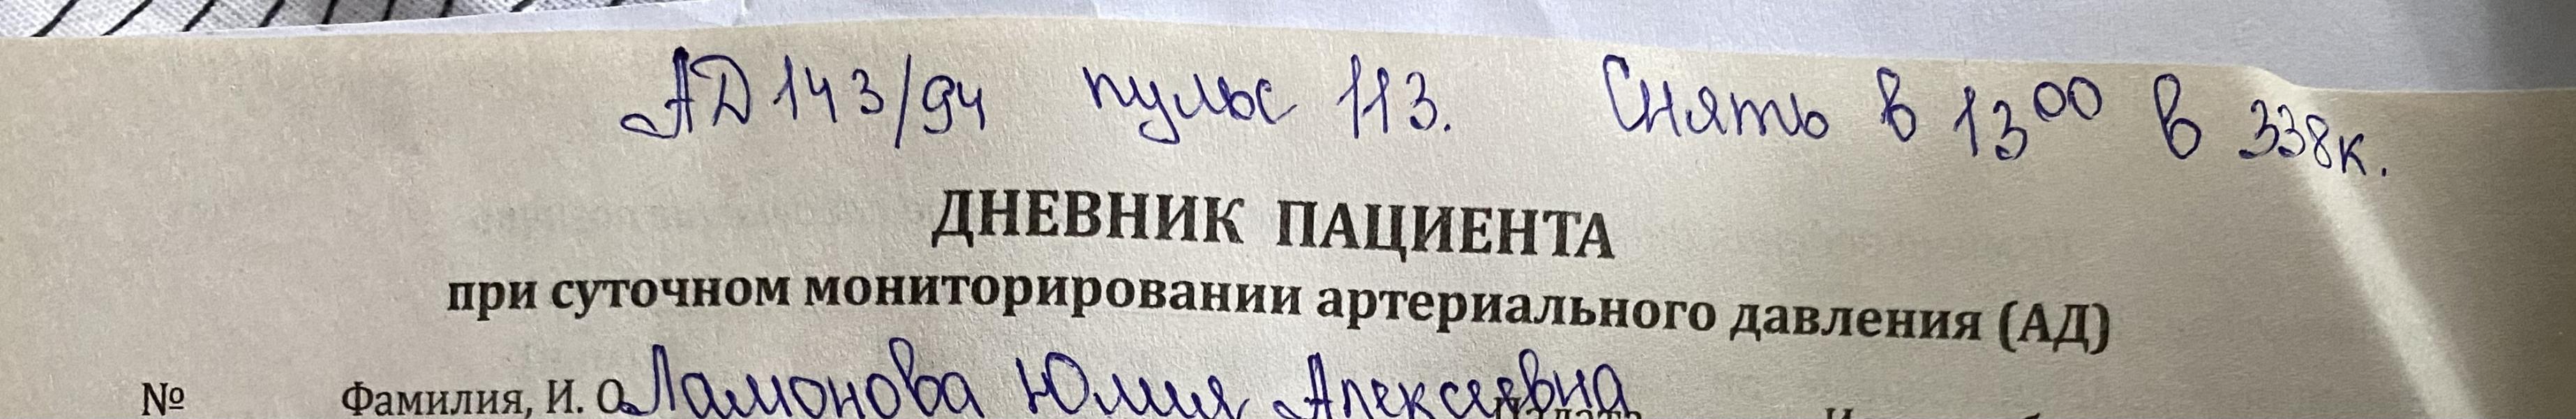 АД 143/94 пульс 113. Снять в 13⁰⁰ в 338к.
ДНЕВНИК ПАЦИЕНТА
при суточном мониторировании артериального давления (АД)
№ Фамилия, И. О. Ламонова Юлия Алексеевна